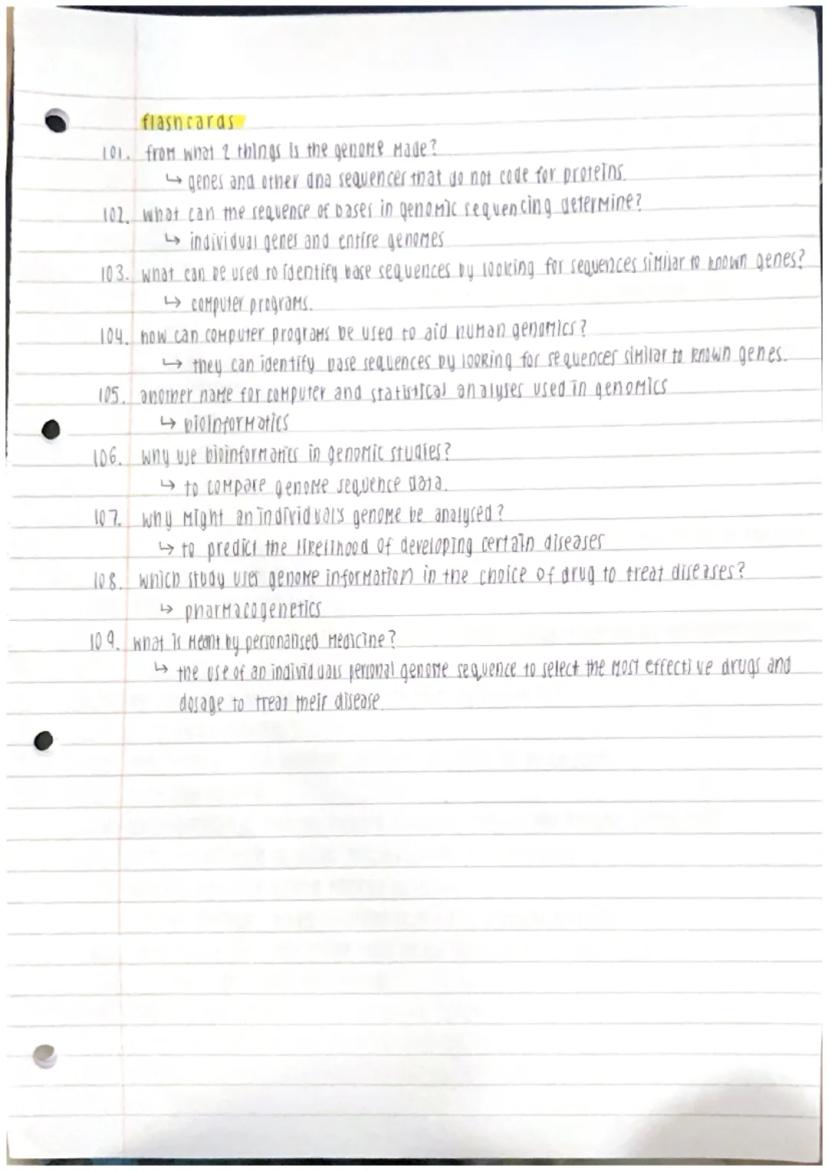 flashcards
101. from what 2 things is the genome made?
↳ genes and other dna sequences that do not code for proteins.
102. what can the sequence of bases in genomic sequencing determine?
↳ individual genes and entire genomes
103. what can be used to identify base sequences by looking for sequences similar to known genes?
↳ computer programs.
104. how can computer programs be used to aid human genomics?
↳ they can identify base sequences by looking for sequences similar to known genes.
105. another name for computer and statistical analyses used in genomics
↳ bioinformatics
106. why use bioinformatics in genomic studies?
↳ to compare genome sequence data.
107. why might an individual's genome be analysed?
↳ to predict the likelihood of developing certain diseases
108. which study uses genome information in the choice of drug to treat diseases?
↳ pharmacogenetics
109. what is meant by personalised medicine?
↳ the use of an individuals personal genome sequence to select the most effective drugs and
dosage to treat their disease.